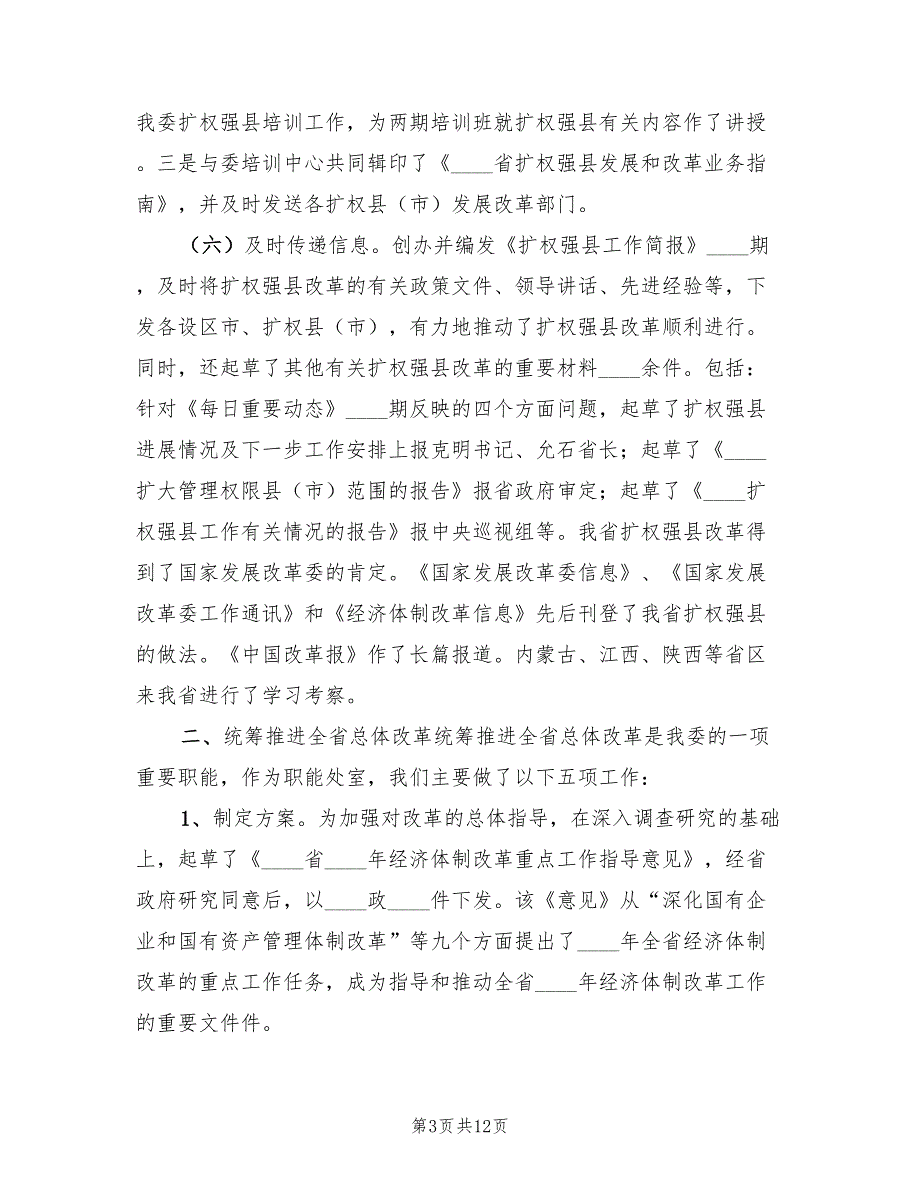 我委扩权强县培训工作，为两期培训班就扩权强县有关内容作了讲授
。三是与委培训中心共同辑印了《____省扩权强县发展和改革业务指
南》，并及时发送各扩权县（市）发展改革部门。
（六）及时传递信息。创办并编发《扩权强县工作简报》____期
，及时将扩权强县改革的有关政策文件、领导讲话、先进经验等，下
发各设区市、扩权县（市），有力地推动了扩权强县改革顺利进行。
同时，还起草了其他有关扩权强县改革的重要材料____余件。包括：
针对《每日重要动态》____期反映的四个方面问题，起草了扩权强县
进展情况及下一步工作安排上报克明书记、允石省长；起草了《____
扩大管理权限县（市）范围的报告》报省政府审定；起草了《____扩
权强县工作有关情况的报告》报中央巡视组等。我省扩权强县改革得
到了国家发展改革委的肯定。《国家发展改革委信息》、《国家发展
改革委工作通讯》和《经济体制改革信息》先后刊登了我省扩权强县
的做法。《中国改革报》作了长篇报道。内蒙古、江西、陕西等省区
来我省进行了学习考察。
二、统筹推进全省总体改革统筹推进全省总体改革是我委的一项
重要职能，作为职能处室，我们主要做了以下五项工作：
1、制定方案。为加强对改革的总体指导，在深入调查研究的基础
上，起草了《____省____年经济体制改革重点工作指导意见》，经省
政府研究同意后，以____政____件下发。该《意见》从“深化国有企
业和国有资产管理体制改革”等九个方面提出了____年全省经济体制
改革的重点工作任务，成为指导和推动全省____年经济体制改革工作
的重要文件件。
第3页共12页